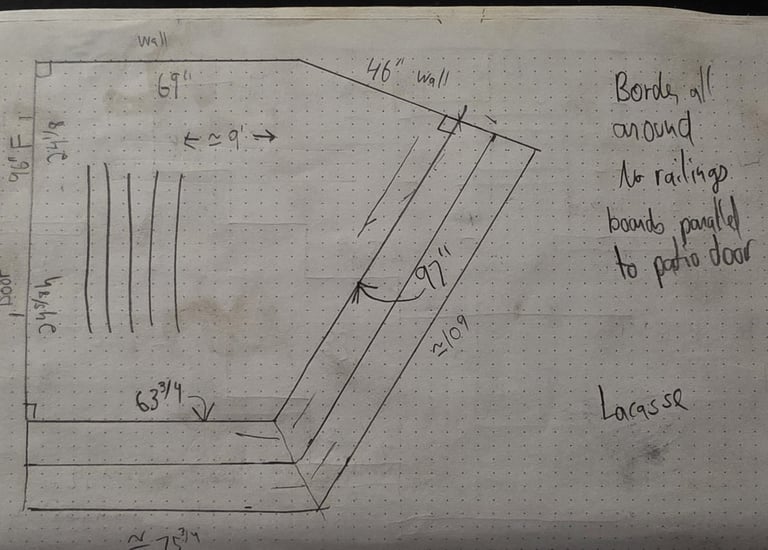 wall
69"
46" wall
≈ 9'
96"
Door
97"
≈109
63 3/4
≈ 75 3/4
Border all
around
No railings
boards parallel
to patio door
Lacasse